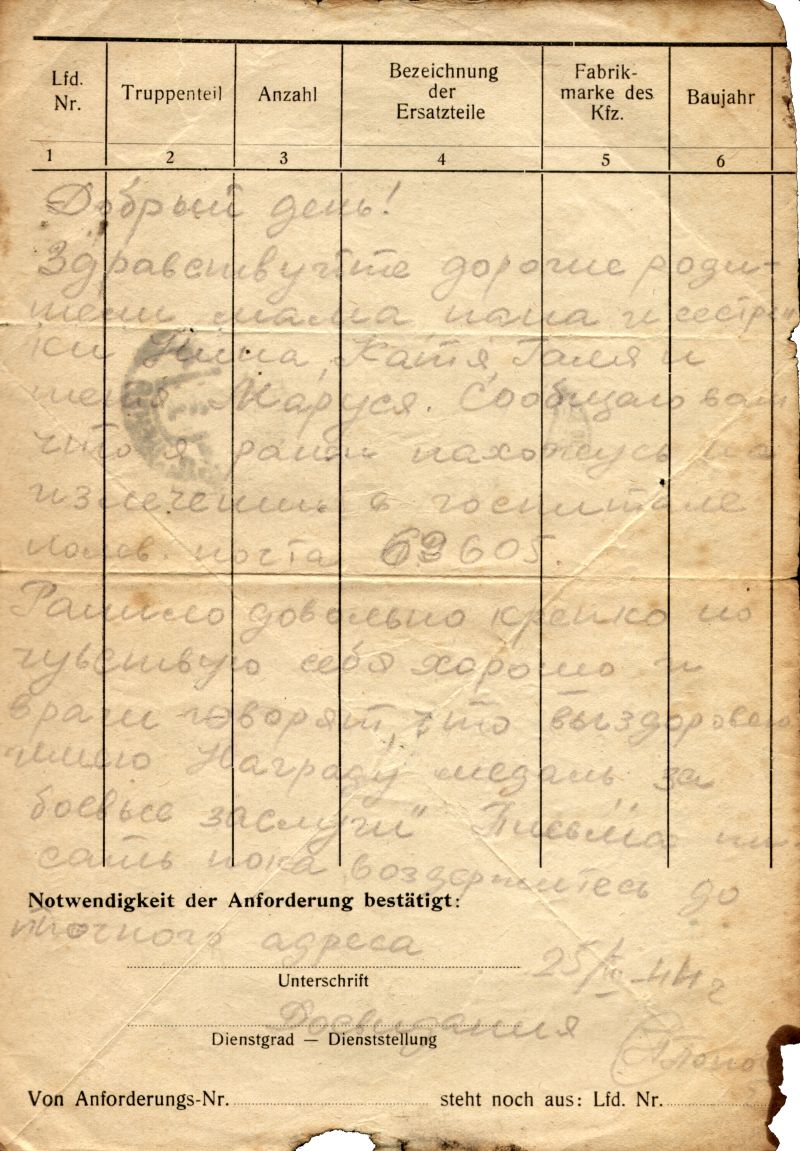 Lfd. Nr.
Truppenteil
Anzahl
Bezeichnung der Ersatzteile
Fabrik-marke des Kfz.
Baujahr
1 2 3 4 5 6
Добрый день!
Здравствуйте дорогие роди-
тели мама папа и сестрён
ки Нина, Катя, Галя и
тетя Маруся. Сообщаю вам
что я ранен нахожусь на
излечении в госпитале
полев. почта 605.
Ранило довольно крепко но
чувствую себя хорошо и
врачи говорят, что выздоровею
имею Награду медаль за
боевые заслуги" Письма пи-
сать пока воздержитесь до
Notwendigkeit der Anforderung bestätigt:
точного адреса
25/ 44 г
Unterschrift
Досвидания
Dienstgrad — Dienststellung
Von Anforderungs-Nr. steht noch aus: Lfd. Nr.